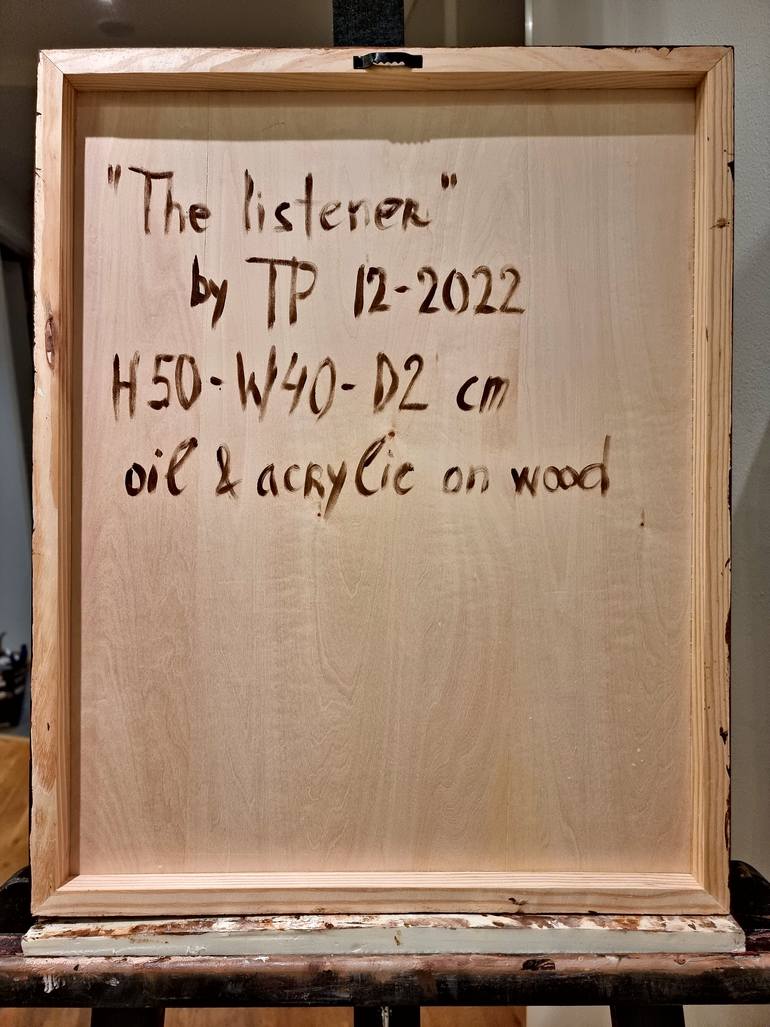 "The listener"
by TP 12-2022
H50-W40-D2 cm
oil & acrylic on wood